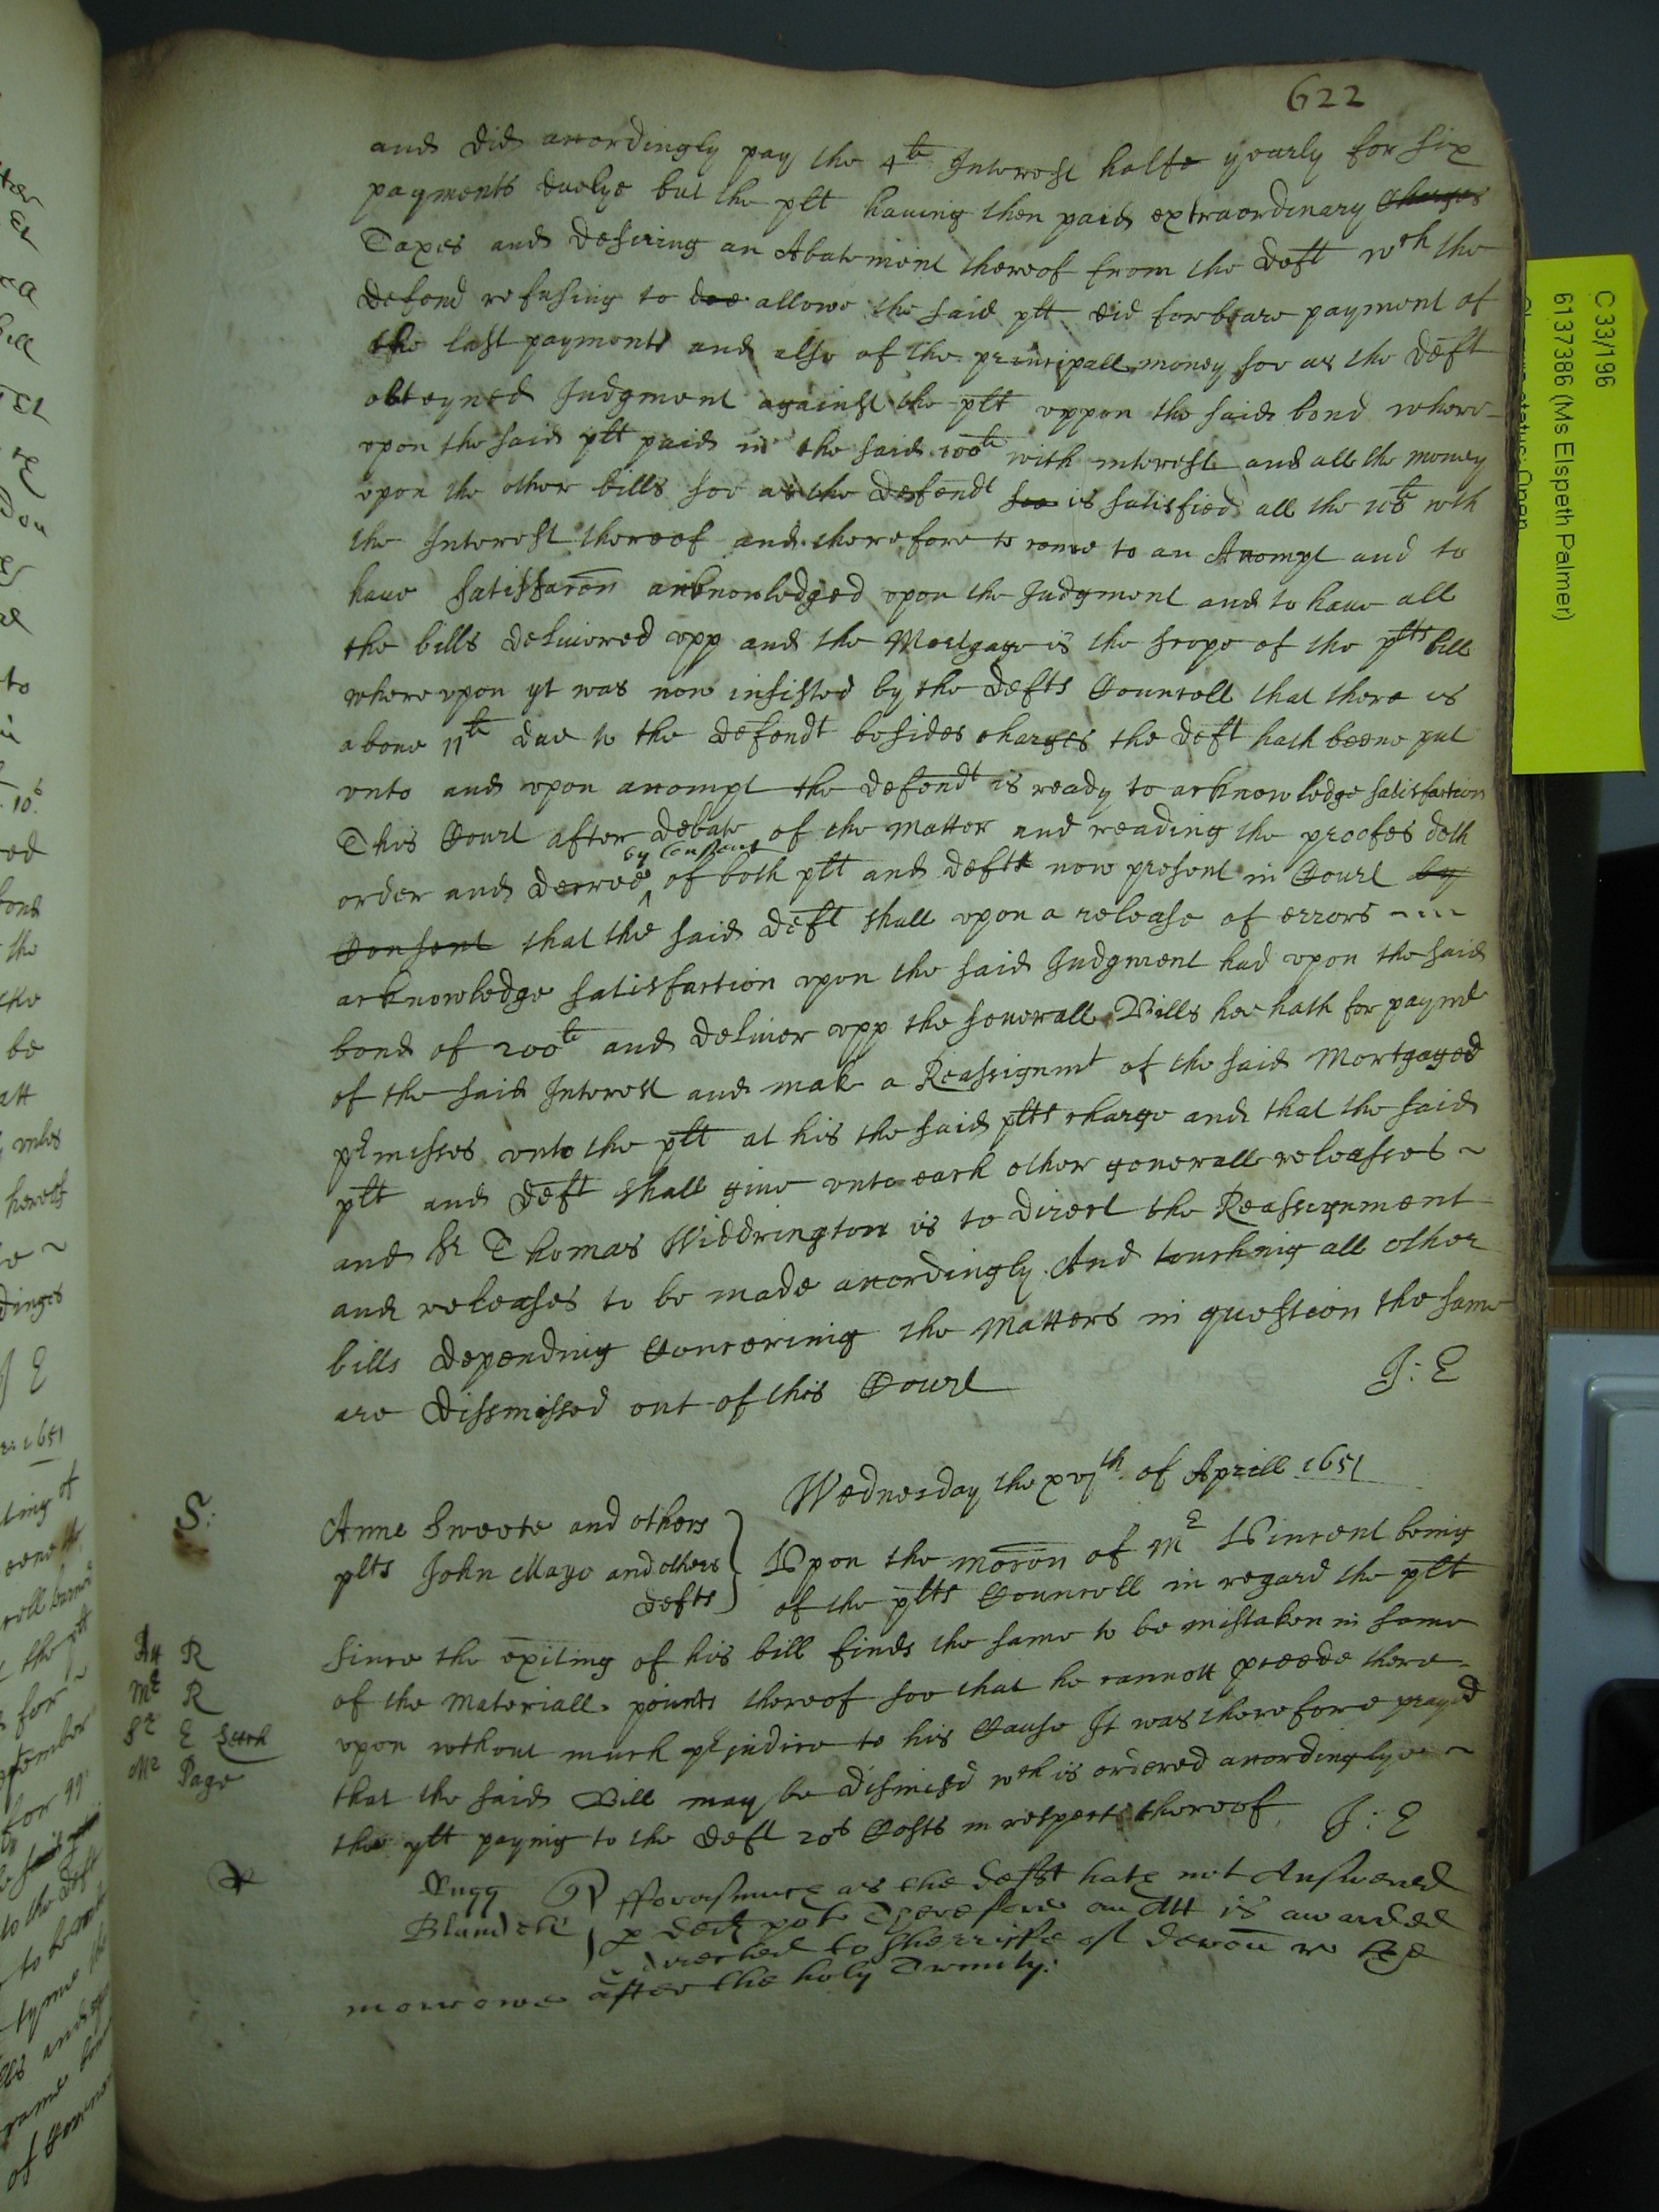 622
and did accordingly pay the 4li Interest halfe yearly for six
payments duelye but the plt haueing then paid extraordinary Charges
Taxes and desireing an Abatement thereof from the Deft wch the
Defend refusing to doe allowe the said plt did forbeare payment of
the last payments and alsoe of the principall money soe as the Deft
obteyned Judgment against the plt vppon the said bond where-
vpon the said plt paid in the said 100li with interest and all the money
vpon the other bills soe as the Defendt soe is satisfied all the wth
the Interest thereof and therefore to come to an Accompt and to
haue satisfaccon acknowledged vpon the Judgment and to haue all
the bills deliuered vpp and the Mortgage is the scope of the plts bill
wherevpon yt was now insisted by the Defts Councell that there is
aboue 11li due to the Defendt besides charges the Deft hath beene put
vnto and vpon accompt the Defendt is ready to acknowledge satisfaction
This Court after debate of the matter and reading the proofes doth
order and decree by Consent of both plt and Defts now present in Court by
Consent that the said Deft shall vpon a release of errors
acknowledge satisfaction vpon the said Judgment had vpon the said
bond of 200li and deliuer vpp the seuerall Bills hee hath for paymt
of the said Interest and make a Reassignmt of the said Mortgaged
prmisses vnto the plt at his the said plts charge and that the said
plt and Deft shall giue vnto each other generall releasses ~
and Sr Thomas Widdrington is to direct the Reassignment
and releases to be made accordingly. And touching all other
bills depending Concerning the Matters in question the same
are dissmissed out of this Court
J: E
Wednesday the xvjth of Aprill 1651
S:
Anne Sweete and others
plts John Mayo and others
defts
Vpon the mocon of Mr Vincent being
of the plts Councell in regard the plt
since the exiting of his bill finds the same to be mistaken in some
of the Materiall points thereof soe that he cannott proceede there-
vpon wthout much prjudice to his Cause It was therefore prayed
that the said Bill may be dismisd wch is ordered accordingly ~
the plt paying to the Deft 20s Costs in respect thereof J: E
R
Mr R
Sr E
Mr Page
Pugg
Forasmuch as the defft hath not Answered
therefore an Att is awarded
directed to Sherriffe of Devon
morrowe after the holy Trinity.
C 33/196
6137386 (Ms Elspeth Palmer)